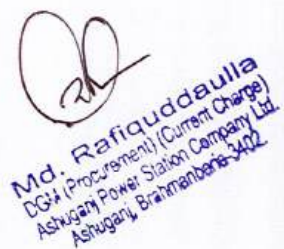 Md. Rafiquddaulla
DGM (Procurement) (Current Charge)
Ashuganj Power Station Company Ltd.
Ashuganj, Brahmanbaria-3402.